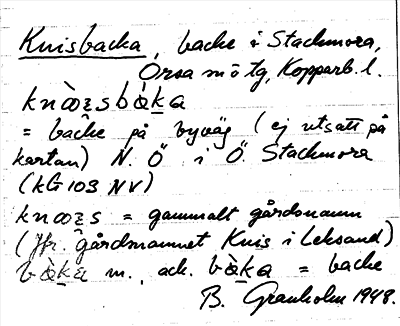 Knisbacka, backe i Stackmora,
Orsa sn ö tg, Kopparb. l.
= backe på byväg (ej utsatt på
kartan) N. Ö i Ö. Stackmora
(KG 103 NV)
= gammalt gårdsnamn
(Jfr. gårdsnamnet Knis i Leksand)
m., ack. bàka = backe
B. Granholm 1948.